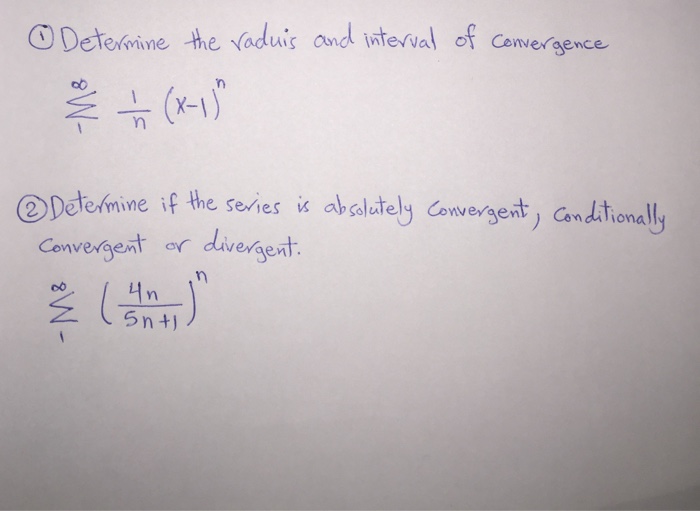 ① Determine the raduis and interval of convergence
∞ Σ 1 1/n (x-1)^n
② Determine if the series is absolutely convergent, conditionally
convergent or divergent.
∞ Σ 1 (4n/5n+1)^n